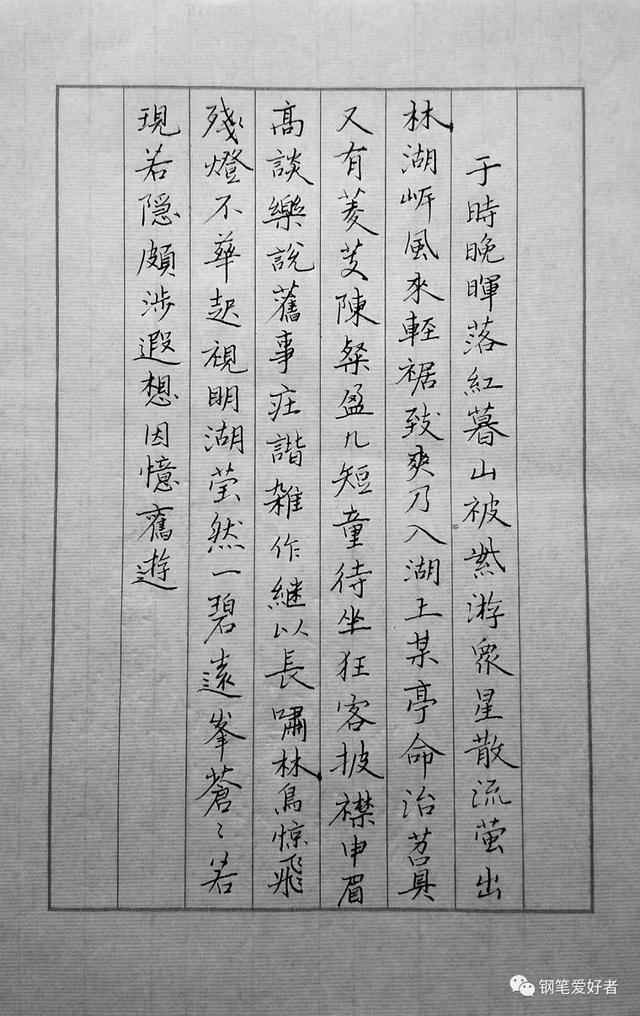 于時晚暉落紅暮山被紫游衆星散流萤出
林湖岍風來輕裾致爽乃入湖上某亭命治茗具
又有菱芡陳粲盈几短童待坐狂客披襟申眉
高談樂說舊事庄諧雑作継以長嘯林鳥惊飛
殘燈不華起視明湖莹然一碧遠峯蒼〻若
現若隠頗涉遐想因憶舊遊
钢笔爱好者